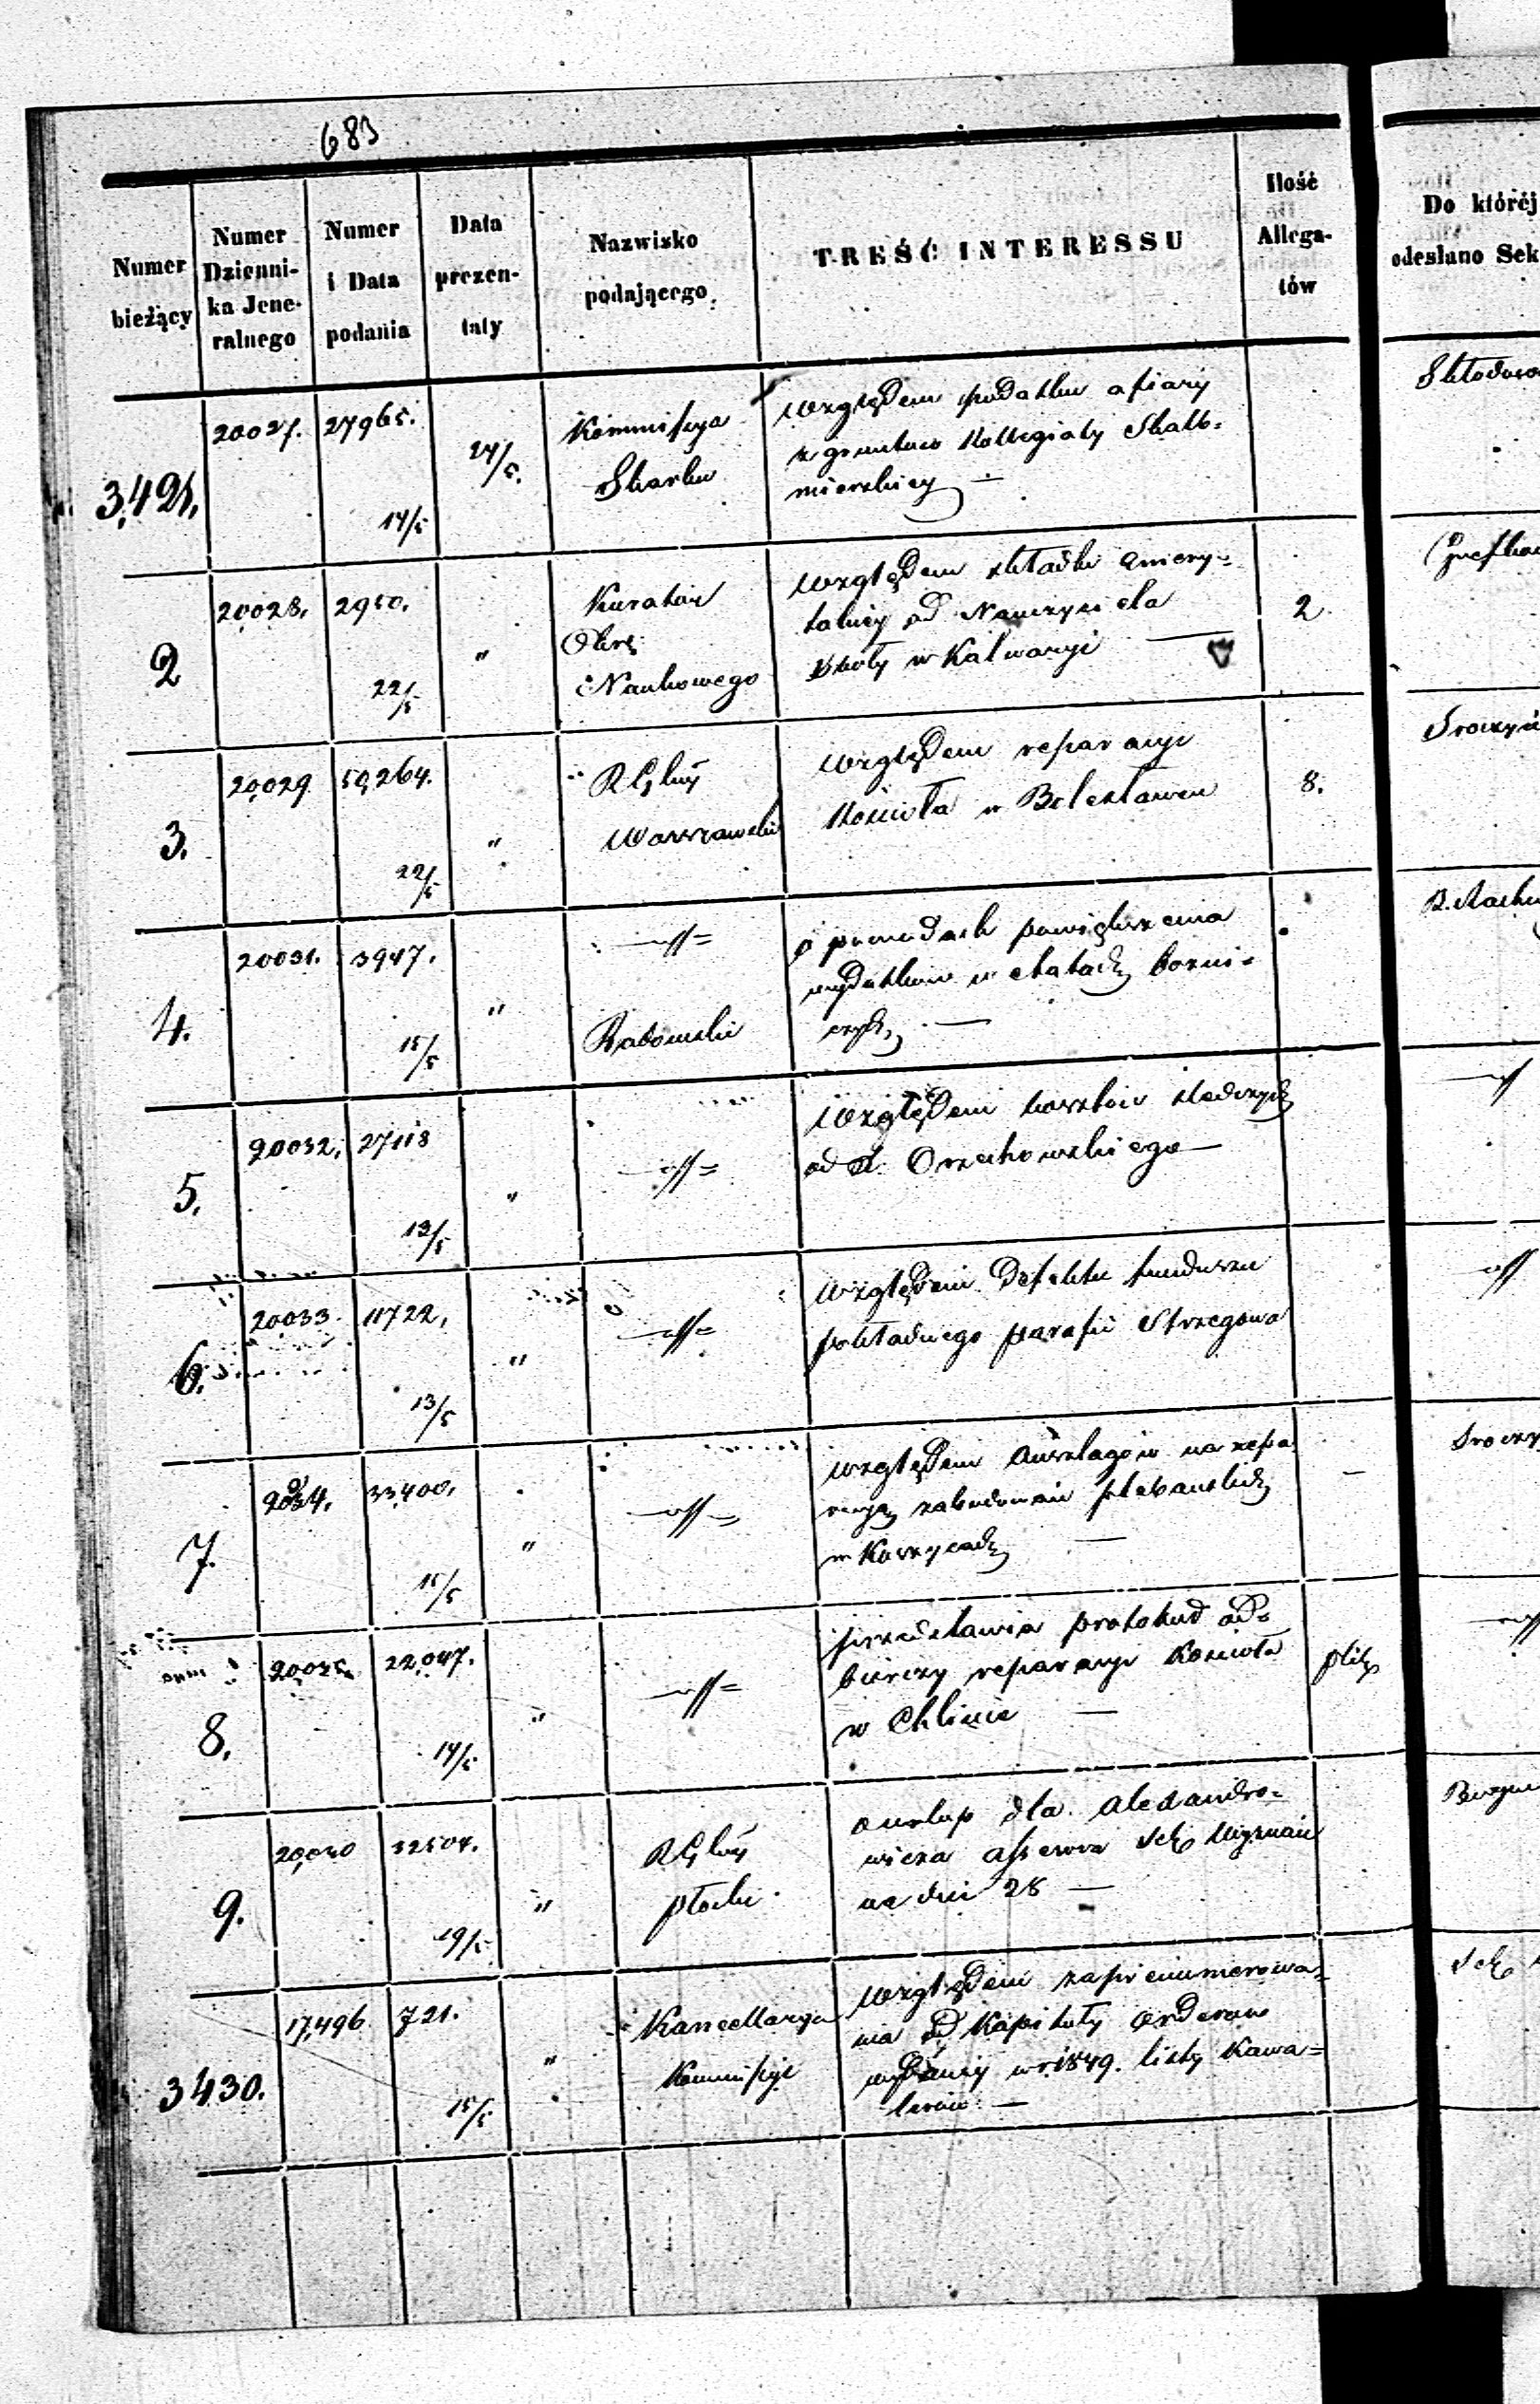 683
Numer bieżący | Numer Dziennika Jeneralnego | Numer i Data podania | Data prezentaty | Nazwisko podającego | TREŚĆ INTERESSU | Ilość Allegatów | Do któréj odesłano Sek
3,421. | 20027. | 27965. 14/5 | 24/5. | Kommissya Skarbu
Względem podatku ofiary
z gruntów Kollegiaty Skalb-
mierskiey —
2 | 20028. | 2950. 22/5 | " | Kurator Okrę: Naukowego | 2
Względem składki emery-
talnéy od Nauczyciela
szkoły w Kalwaryi —
3. | 20029 | 50,264. 22/5 | " | R Gby Warszawski | 8.
Względem reparacyi
Kościoła w Bolesławcu
4. | 20031. | 3947. 15/5 | " | —"— Radomski
o powodach powiększenia
wydatków w etatach bożni-
czych. —
5. | 20032. | 27118 13/5 | " | —"—
Względem kosztów śledczych
od X. Orzechowskiego —
6. | 20033. | 11722. 13/5 | " | —"—
Względem defektu funduszu
pokładnego parafii Strzegowa
7. | 20034. | 33,400. 15/5 | " | —"— | —
Względem anszlagów na repa
racyą zabudowań plebańskich
w Koszycach —
8. | 20035. | 22,047. 14/5 | " | —"—
przedstawia protokuł od-
biorczy reparacyi Kościoła
w Chlinie —
9. | 20,030 | 32504. 19/5 | " | R Gby Płocki
o urlop dla Alexandro-
wicza assesora Sek Wyznań
na dni 28 —
3430. | 17,496 | 721. 15/5 | " | Kancellarya Kommissyi
Względem zaprenumerowa-
nia od Kapituły orderów
wydanéy w r 1849. listy Kawa-
lerów. —